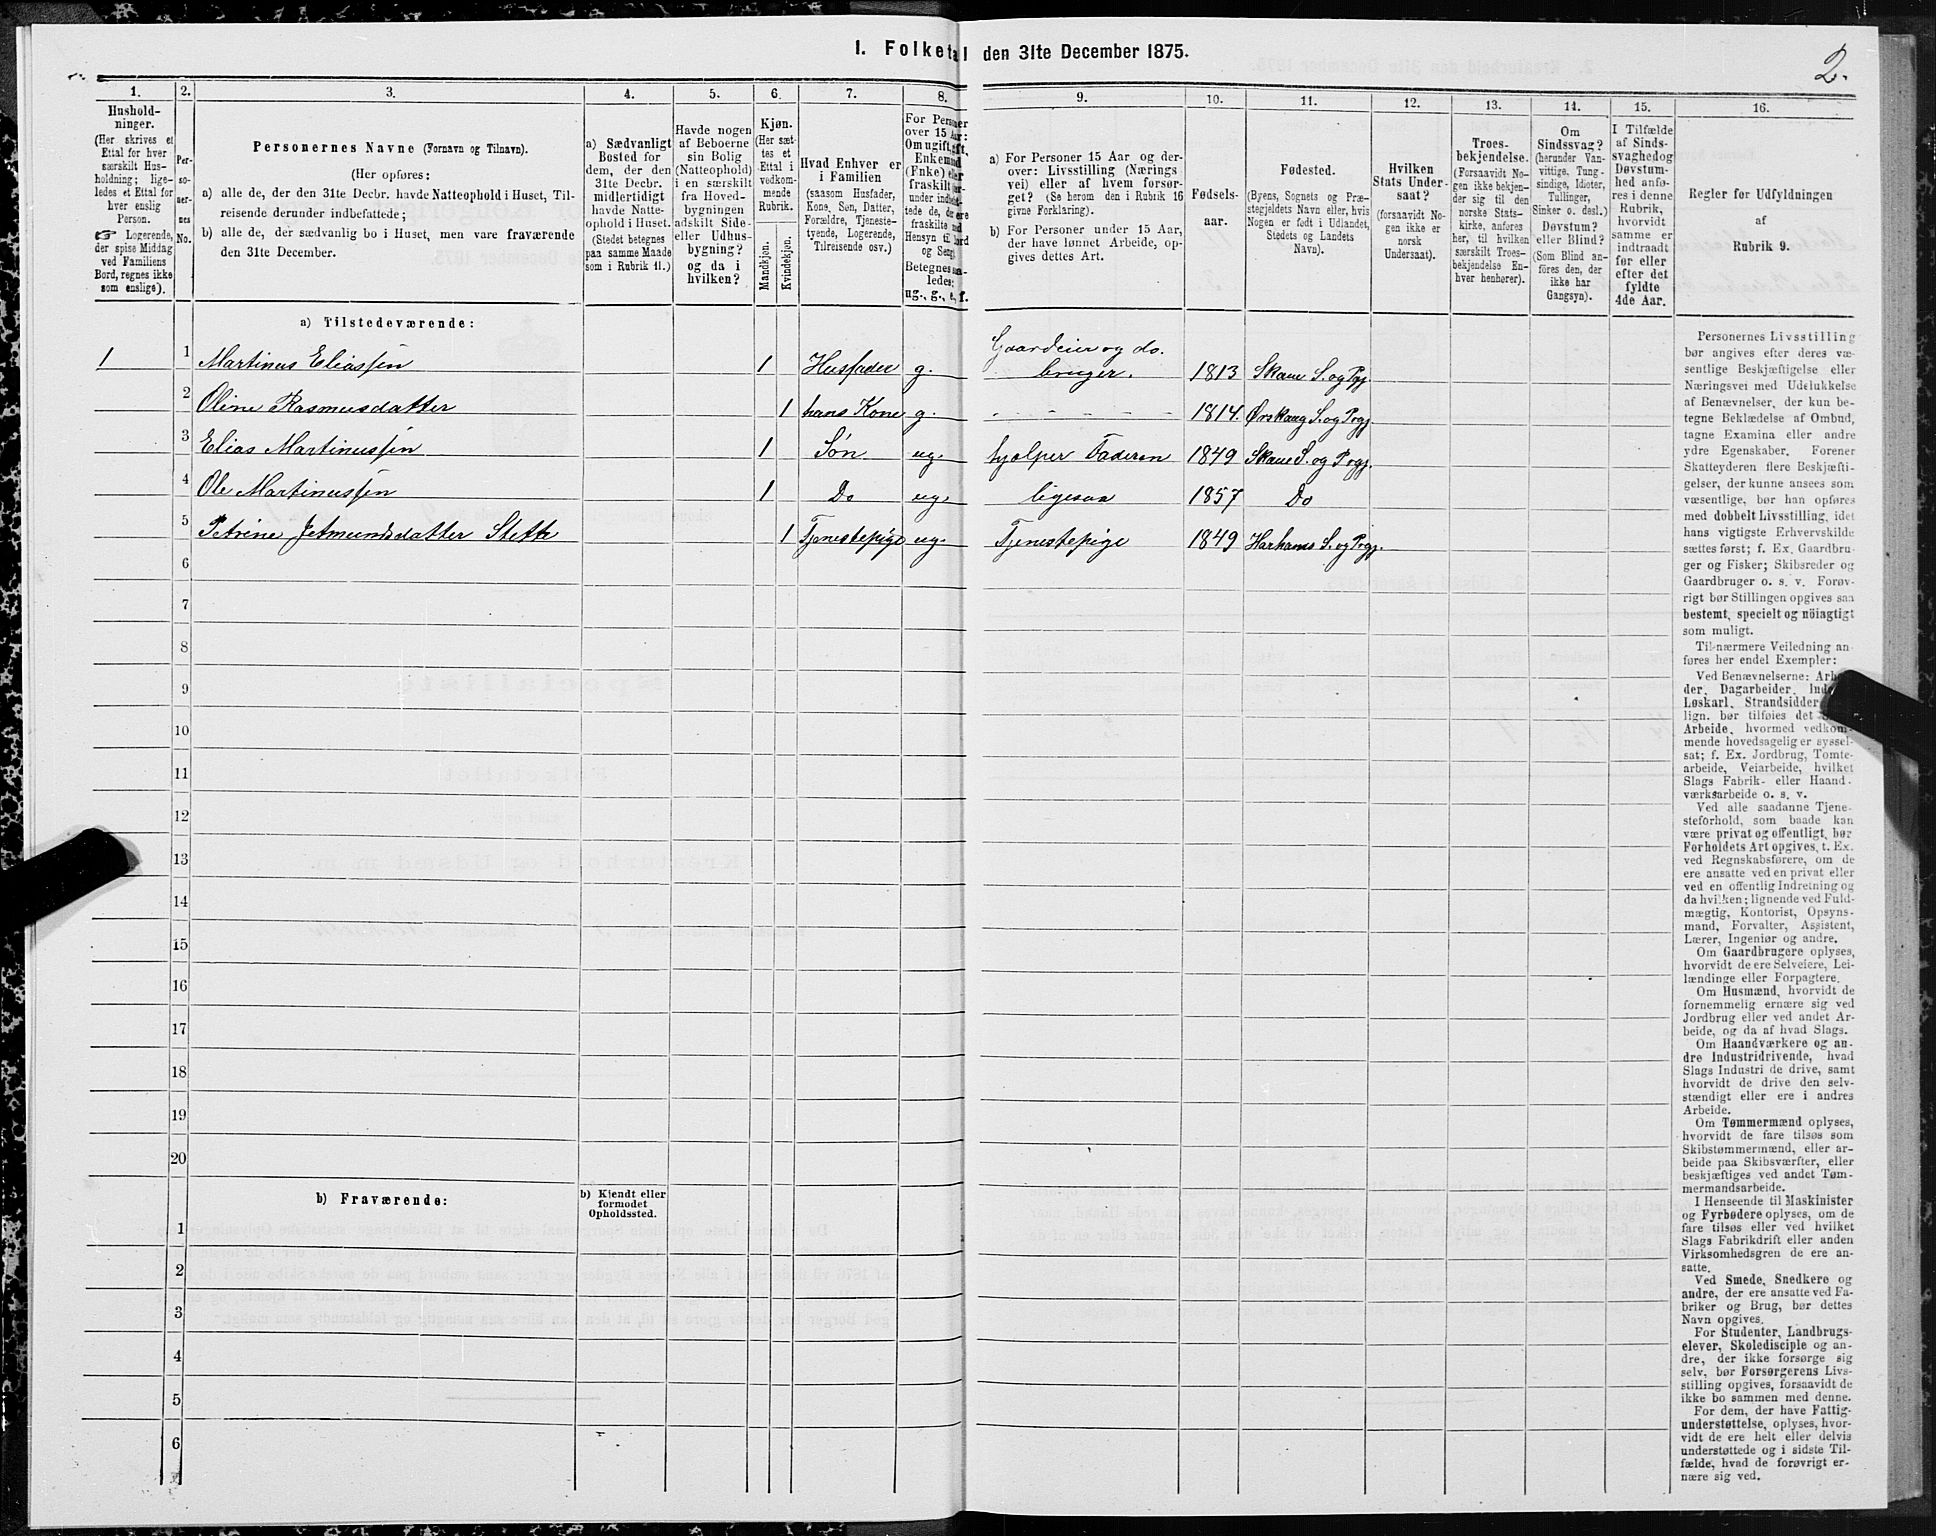 1. Folketal den 31te December 1875.
2.
1.
Hushold-
ninger.
(Her skrives et
Ettal for hver
særskilt Hus-
holdning; lige-
ledes et Ettal for
hver enslig
Person.
☞ Logerende,
der spise Middag
ved Familiens
Bord, regnes ikke
som enslige).
2.
Per-
so-
ner-
nes
No.
3.
Personernes Navne (Fornavn og Tilnavn).
(Her opføres:
a) alle de, der den 31te Decbr. havde Natteophold i Huset, Til-
reisende derunder indbefattede;
b) alle de, der sædvanlig bo i Huset, men vare fraværende
den 31te December.
4.
a) Sædvanligt
Bosted for
dem, der den
31te Decbr.
midlertidigt
havde Natte-
ophold i Huset.
(Stedet betegnes
paa samme Maade
som i Rubrik 11.)
5.
Havde nogen
af Beboerne
sin Bolig
(Natteophold)
i en særskilt
fra Hoved-
bygningen
adskilt Side-
eller Udhus-
bygning?
og da i
hvilken?
6.
Kjøn.
(Her sæt-
tes et
Ettal i
vedkom-
mende
Rubrik.
Mandkjøn.
Kvindekjøn.
7.
Hvad Enhver er
i Familien
(saasom Husfader,
Kone, Søn, Datter,
Forældre, Tjeneste-
tyende, Logerende,
Tilreisende osv.)
8.
For Personer
over 15 Aar:
Om ugift, gift,
Enkemand
(Enke) eller
fraskilt
Betegnes saa-
ledes:
ug., g., e, f.
9.
a) For Personer 15 Aar og der-
over: Livsstilling (Nærings
vei) eller af hvem forsør-
get? (Se herom den i Rubrik 16
givne Forklaring).
b) For Personer under 15 Aar,
der have lønnet Arbeide, op-
gives dettes Art.
10.
Fødsels-
aar.
11.
Fødested.
(Byens, Sognets og Præ-
stegjeldets Navn eller, hvis
Nogen er født i Udlandet,
Stedets og Landets
Navn).
12.
Hvilken
Stats Under-
saat?
(forsaavidt No-
gen ikke er
norsk
Undersaat).
13.
Troes-
bekjendelse.
(Forsaavidt No-
gen ikke bekjen-
der sig til den
norske Stats-
kirke, anføres
her, til hvilken
særskilt Troes-
bekjendelse En-
hver henhører).
14.
Om
Sindssvag?
(herunder Van-
vittige, Tung-
sindige, Idioter,
Tullinger,
Sinker o. desl.)
Døvstum?
eller Blind?
(Som Blind an-
føres den, der
ikke har
Gangsyn).
15.
I Tilfælde
af Sinds-
svaghed og
Døvstum-
hed anfø-
res i denne
Rubrik,
hvorvidt
samme er
indtraadt
før eller
efter det
fyldte
4de Aar.
16.
Regler før Udfyldningen
af
Rubrik 9.
a) Tilstedeværende:
1 1 Martinus Eliassen 1 Husfader g. Gaardeier og do.
bruger. 1813 Skaue S. og Pgj.
2 Oline Rasmusdatter 1 hans Kone g. - - - - - - 1814. Ørskaug S. og Prgj.
3 Elias Martinussen 1 Søn ug. hjælper Faderen 1849 Skaue S. og Prgj.
4 Ole Martinussen 1 Do ug. ligesaa 1857 Do
5 Petrine Jetmundsdatter Stette 1 Tjenestepige ug. Tjenestepige 1849 Harhams S. og Prgj.
6
7
8
9
10
11
12
13
14
15
16
17
18
19
20
b) Fraværende:
b) Kjendt eller
formodet
Opholdssted.
1
2
3
4
5
6
Personernes Livsstilling
bør angives efter deres væ-
sentlige Beskjæftigelse eller
Næringsvei med Udelukkelse
af Benævnelser, der kun be-
tegne Beklædelse af Ombud,
tagne Examina eller andre
ydre Egenskaber. Forener
Skatteyderen flere Beskjæfti-
gelser, der kunne ansees som
væsentlige, bør han opføres
med dobbelt Livsstilling, idet
hans vigtigste Erhvervskilde
sættes først; f. Ex. Gaardbru-
ger og Fisker; Skibsreder og
Gaardbruger o. s. v. Forøv-
rigt bør Stillingen opgives saa
bestemt, specielt og nöiagtigt
som muligt.
Til nærmere Veiledning an-
føres her endel Exempler:
Ved Benævnelserne: Arbei-
der, Dagarbeider,
Løskarl, Strandsidder
lign. bør tilføies det
Arbeide, hvormed vedkom-
mende hovedsagelig er syssel-
sat; f. Ex. Jordbrug, Tomte-
arbeide, Veiarbeide, hvilket
Slags Fabrik- eller Haand-
værksarbeide o. s. v.
Ved alle saadanne Tjene-
steforhold, som baade kan
være privat og offentligt, bør
Forholdets Art opgives, t. Ex.
ved Regnskabsførere, om de
ere ansatte ved en privat eller
ved en offentlig Indretning og
da hvilken; lignende ved Fuld-
mægtig, Kontorist, Opsyns-
mand, Forvalter, Assistent,
Lærer, Ingeniør og andre.
Om Gaardbrugere oplyses,
hvorvidt de ere Selveiere, Lei-
lændinge eller Forpagtere.
Om Husmænd, hvorvidt de
fornemmelig ernære sig ved
Jordbrug eller ved andet Ar-
beide, og da af hvad Slags.
Om Haandværkere og an-
dre Industridrivende, hvad
Slags Industri de drive, samt
hvorvidt de drive den selv-
stændigt eller ere i andres
Arbeide.
Om Tømmermænd oplyses,
hvorvidt de fare tilsøs som
Skibstømmermænd, eller ar-
beide paa Skibsværfter, eller
beskjæftiges ved andet Tøm-
mermandsarbeide.
I Henseende til Maskinister
og Fyrbødere oplyses, om de
fare tilsøs eller ved hvilket
Slags Fabrikdrift eller anden
Virksomhedsgren de ere an-
satte.
Ved Smede, Snedkere og
andre, der ere ansatte ved Fa-
briker og Brug, bør dettes
Navn opgives.
For Studenter, Landbrugs-
elever, Skoledisciple og an-
dre, der ikke forsørge sig
selv, bør Forsørgerens Livs-
stilling opgives, forsaavidt de
ikke bo sammen med denne.
For dem, der have Fattig-
understøttelse, oplyses, hvor-
vidt de ere helt eller delvis
understøttede og i sidste Til-
fælde, hvad de forøvrigt er-
nære sig ved.